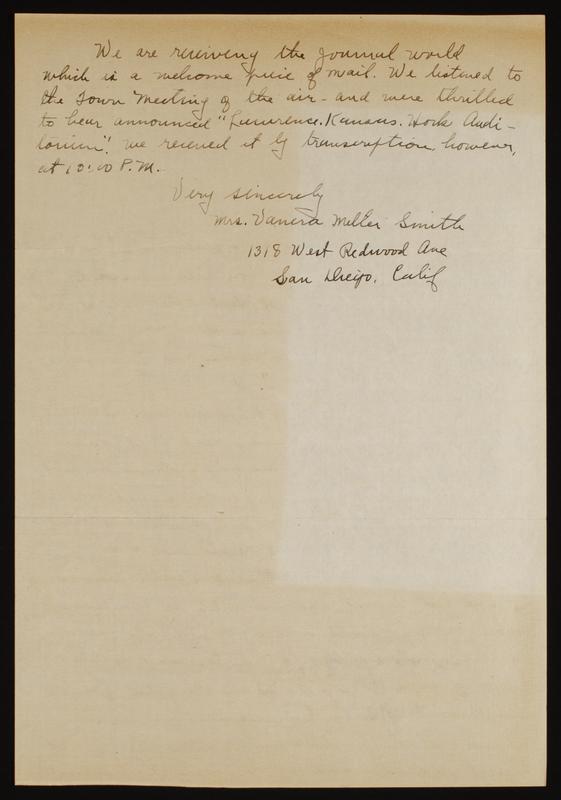 We are receiving the Journal World
which is a welcome piece of mail. We listened to
the Town Meeting of the air - and were thrilled
to hear announced "Lawrence, Kansas. Hoch Audi-
torium". We received it by transcription, however,
at 10:00 P.M.
Very sincerely
Mrs. Vanera Miller Smith
1318 West Redwood Ave
San Diego, Calif